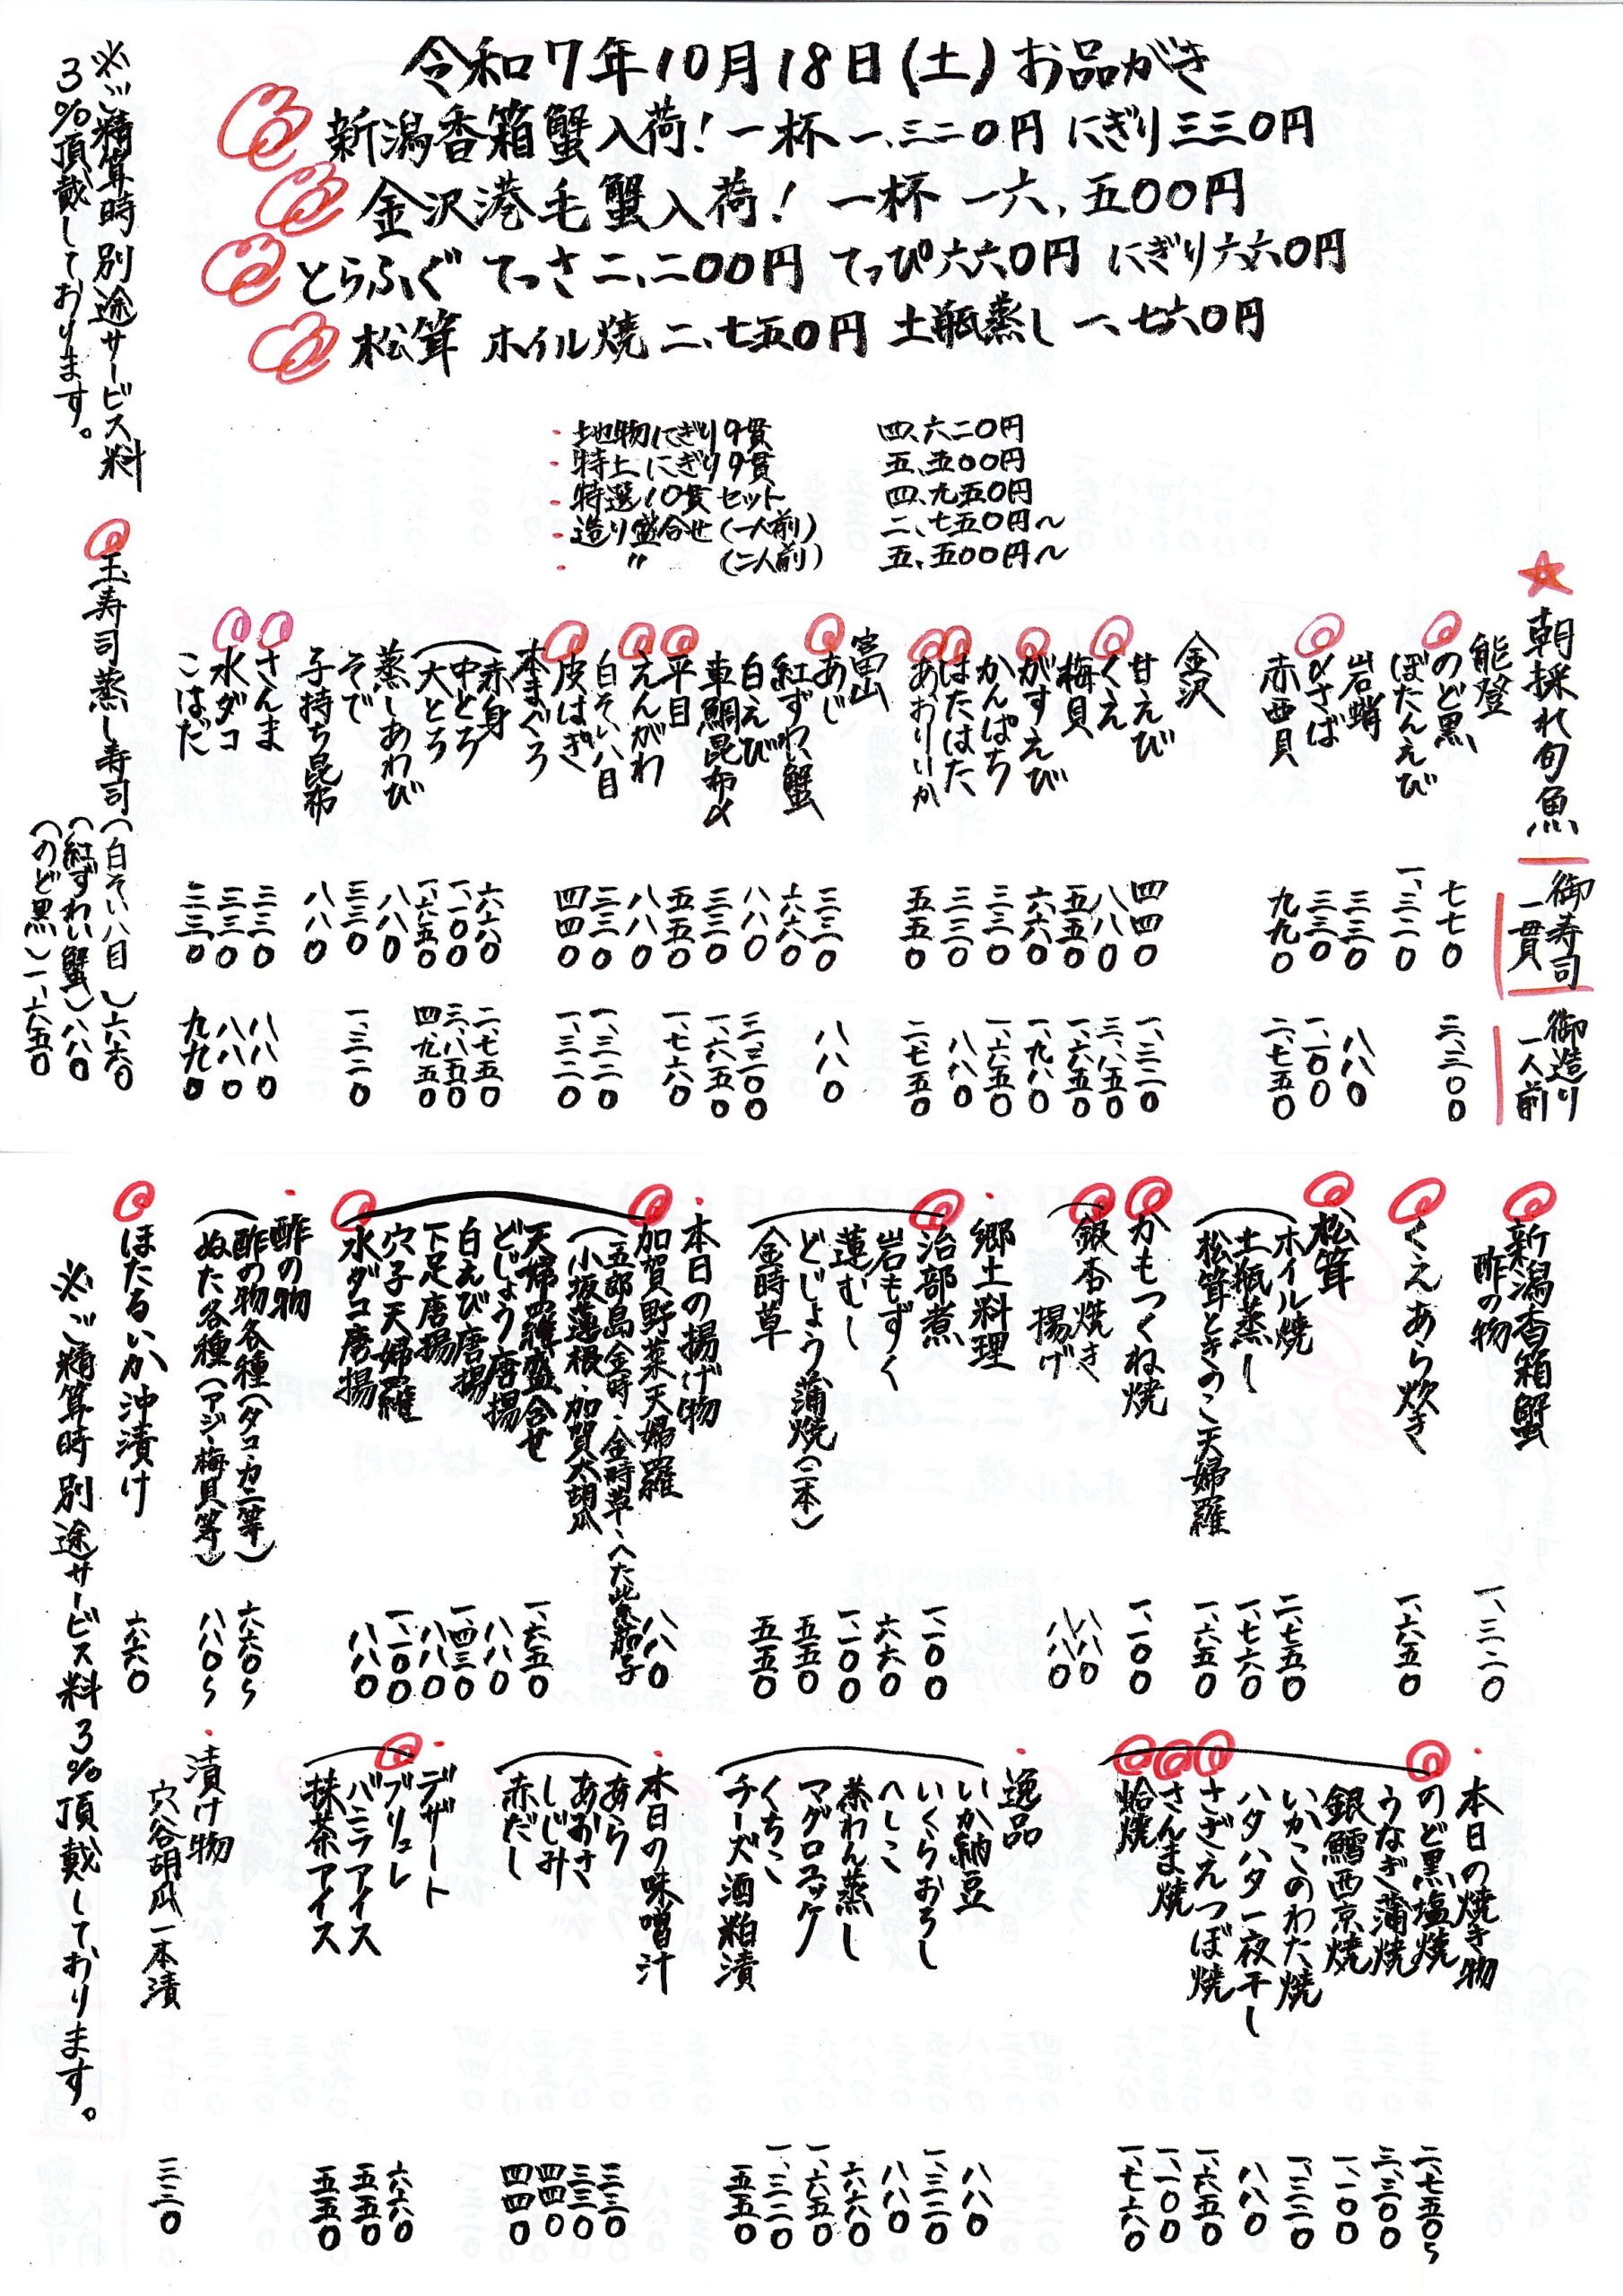 令和7年10月18日(土)お品がき
新潟香箱蟹入荷!一杯 一、三二〇円 にぎり三三〇円
金沢港毛蟹入荷!一杯 一六、五〇〇円
とらふぐ てっさ二、二〇〇円 てっぴ六六〇円 にぎり六六〇円
松茸 ホイル焼二、七五〇円 土瓶蒸し一、七六〇円
・地物にぎり9貫 四、六二〇円
・特上にぎり9貫 五、五〇〇円
・特選10貫セット 四、九五〇円
・造り盛合せ(一人前) 二、七五〇円〜
・〃(二人前) 五、五〇〇円〜
★朝採れ旬魚 御寿司一貫 御造り一人前
能登
のど黒 七七〇 三、三〇〇
ぼたんえび 一、三二〇
岩蛸 三三〇 八八〇
〆さば 三三〇 一、一〇〇
赤西貝 九九〇 二、七五〇
金沢
甘えび 四四〇 一、三二〇
くえ 八八〇 三、八五〇
梅貝 五五〇 一、六五〇
がすえび 六六〇 一、九八〇
かんぱち 三三〇 一、六五〇
はたはた 三三〇 八八〇
あおりいか 五五〇 二、七五〇
富山
あじ 三三〇 八八〇
紅ずわい蟹 六六〇
白えび 八八〇 三、三〇〇
車鯛昆布〆 三三〇 一、六五〇
平目 五五〇 一、七六〇
えんがわ 八八〇
白そい八目 三三〇 一、三二〇
皮はぎ 四四〇 一、三二〇
本まぐろ
赤身 六六〇 二、七五〇
中とろ 一、一〇〇 三、八五〇
大とろ 一、六五〇 四、九五〇
蒸しあわび 八八〇
そで 三三〇 一、三二〇
子持ち昆布 八八〇
さんま 三三〇 八八〇
水ダコ 三三〇 八八〇
こはだ 三三〇 九九〇
玉寿司蒸し寿司(白そい八目)六六〇
(紅ずわい蟹)八八〇
(のど黒)一、六五〇
※ご精算時別途サービス料
3%頂戴しております。
新潟香箱蟹
酢の物 一、三二〇
くえあら炊き 一、六五〇
松茸
ホイル焼 二、七五〇
土瓶蒸し 一、七六〇
松茸ときのこ天婦羅 一、六五〇
かもつくね焼 一、一〇〇
銀杏焼き 八八〇
揚げ 八八〇
・郷土料理
治部煮 一、一〇〇
岩もずく 六六〇
蓮むし 一、一〇〇
どじょう蒲焼(二本) 五五〇
金時草 五五〇
・本日の揚げ物
加賀野菜天婦羅 八八〇
(五郎島金時、金時草、へた紫茄子
(小坂蓮根、加賀太胡瓜
天婦羅盛合せ 一、六五〇
どじょう唐揚 八八〇
白えび唐揚 一、四三〇
下足唐揚 八八〇
穴子天婦羅 一、一〇〇
水ダコ唐揚 八八〇
・酢の物
酢の物各種(タコ・カニ等) 六六〇〜
ぬた各種(アジ・梅貝等) 八八〇〜
ほたるいか沖漬け 六六〇
・本日の焼き物
のど黒塩焼 二、七五〇〜
うなぎ蒲焼 三、三〇〇
銀鱈西京焼 一、一〇〇
いかこのわた焼 一、三二〇
ハタハタ一夜干し 八八〇
さざえつぼ焼 一、六五〇
さんま焼 一、一〇〇
蛤焼 一、七六〇
・逸品
いか納豆 八八〇
いくらおろし 一、三二〇
へしこ 八八〇
茶わん蒸し 六六〇
マグロユッケ 一、六五〇
くちこ 一、三二〇
チーズ酒粕漬 五五〇
・本日の味噌汁
あら 三三〇
あおさ 三三〇
しじみ 四四〇
赤だし 四四〇
・デザート
ブリュレ 六六〇
バニラアイス 五五〇
抹茶アイス 五五〇
・漬け物
穴谷胡瓜一本漬 三三〇
※ご精算時別途サービス料3%頂戴しております。